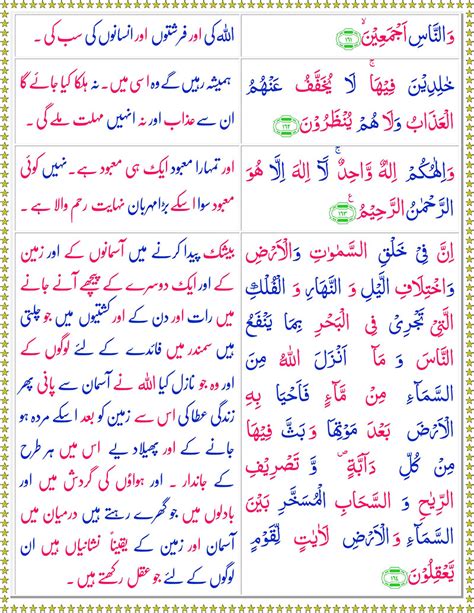 وَالنَّاسِ اَجْمَعِيْنَ ۙ ﴿۱۶۱﴾
اللہ کی اور فرشتوں اور انسانوں کی سب کی ۔
خٰلِدِيْنَ فِيْهَا ۚ لَا يُخَفَّفُ عَنْهُمُ
الْعَذَابُ وَلَا هُمْ يُنْظَرُوْنَ ﴿۱۶۲﴾
ہمیشہ رہیں گے وہ اسی میں۔ نہ ہلکا کیا جائے گا
ان سے عذاب اور نہ انہیں مہلت ملے گی ۔
وَاِلٰهُكُمْ اِلٰهٌ وَّاحِدٌ ۚ لَآ اِلٰهَ اِلَّا هُوَ
الرَّحْمٰنُ الرَّحِيْمُ ﴿۱۶۳﴾
اور تمہارا معبود ایک ہی معبود ہے۔ نہیں کوئی
معبود سوا اسکے بڑا مہربان نہایت رحم والا ہے ۔
اِنَّ فِيْ خَلْقِ السَّمٰوٰتِ وَالْاَرْضِ
وَاخْتِلَافِ الَّيْلِ وَ النَّهَارِ وَ الْفُلْكِ
الَّتِيْ تَجْرِيْ فِي الْبَحْرِ بِمَا يَنْفَعُ
النَّاسَ وَ مَآ اَنْزَلَ اللّٰهُ مِنَ
السَّمَآءِ مِنْ مَّآءٍ فَاَحْيَا بِهِ
الْاَرْضَ بَعْدَ مَوْتِهَا وَ بَثَّ فِيْهَا
مِنْ كُلِّ دَآبَّةٍ ۪ وَّ تَصْرِيْفِ
الرِّيٰحِ وَ السَّحَابِ الْمُسَخَّرِ بَيْنَ
السَّمَآءِ وَ الْاَرْضِ لَاٰيٰتٍ لِّقَوْمٍ
يَّعْقِلُوْنَ ﴿۱۶۴﴾
بیشک پیدا کرنے میں آسمانوں کے اور زمین
کے اور ایک دوسرے کے پیچھے آنے جانے
میں رات اور دن کے اور کشتیوں میں جو چلتی
ہیں سمندر میں فائدے کے لئے لوگوں کے
اور وہ جو نازل کیا اللہ نے آسمان سے پانی پھر
زندگی عطا کی اس سے زمین کو بعد اسکے مردہ ہو
جانے کے اور پھیلا دیے اس میں ہر طرح
کے جاندار ۔ اور ہواؤں کی گردش میں اور
بادلوں میں جو گھرے رہتے ہیں درمیان میں
آسمان اور زمین کے یقیناً نشانیاں ہیں ان
لوگوں کے لئے جو عقل رکھتے ہیں ۔